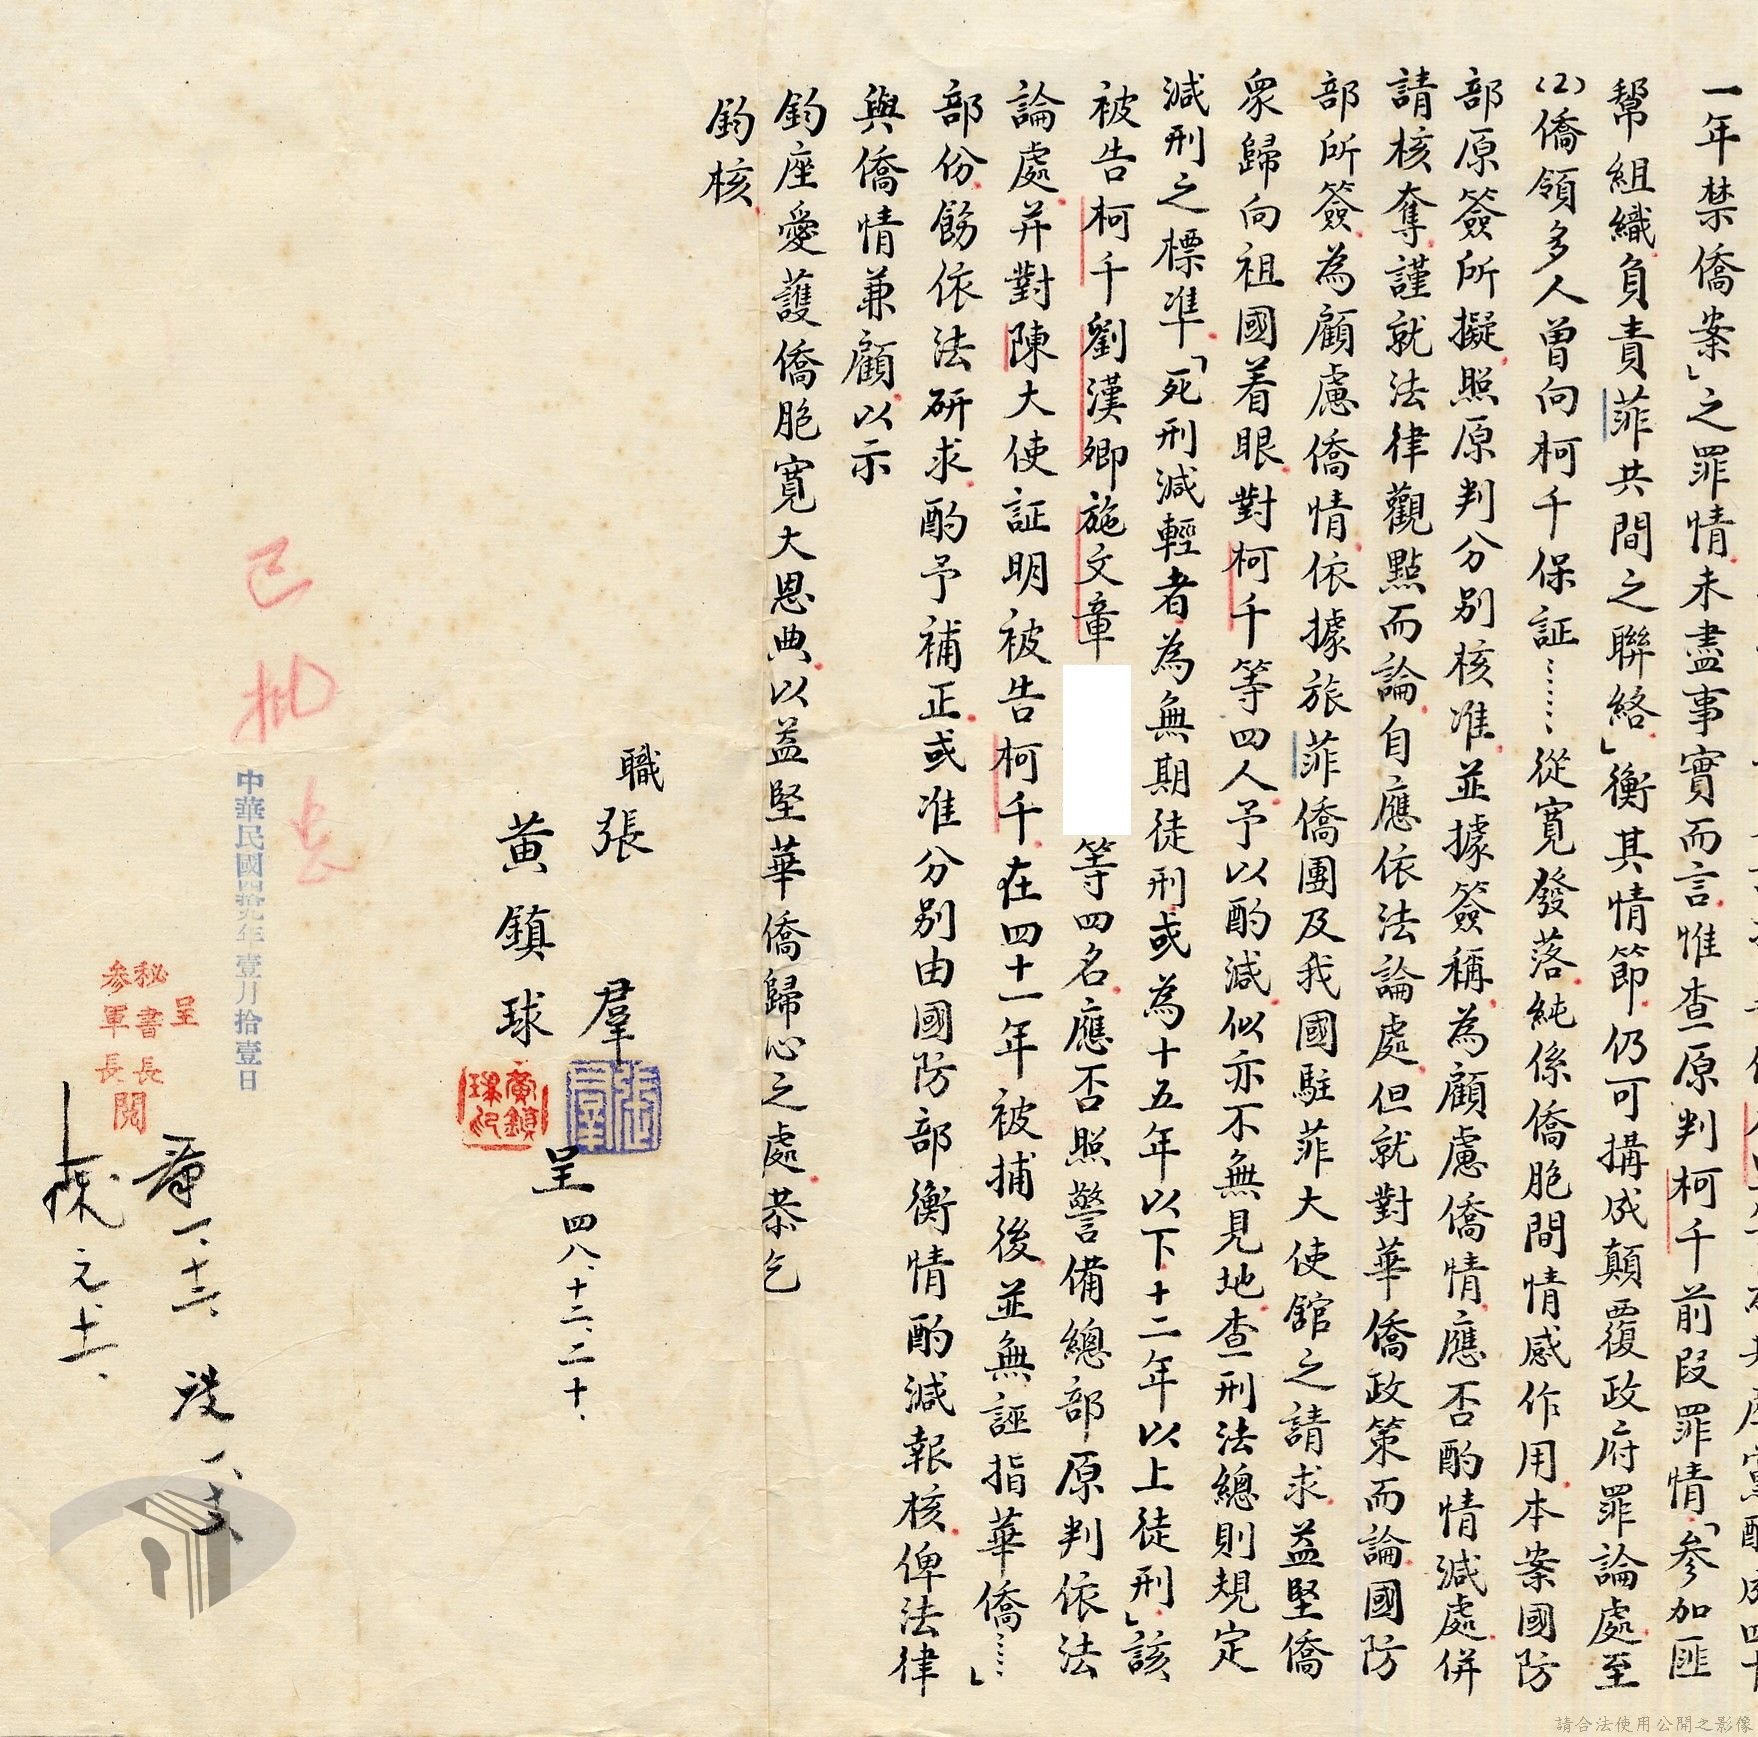 一年禁僑案」之罪情未盡事實而言惟查原判柯千前段罪情「參加匪
幫組織負責菲共間之聯絡」衡其情節仍可構成顛覆政府罪論處至
(2)僑領多人曾向柯千保証……從寬發落純係僑胞間情感作用本案國防
部原簽所擬照原判分別核准並據簽稱為顧慮僑情應否酌情減處併
請核奪謹就法律觀點而論自應依法論處但就對華僑政策而論國防
部所簽為顧慮僑情依據旅菲僑團及我國駐菲大使館之請求益堅僑
眾歸向祖國着眼對柯千等四人予以酌減似亦不無見地查刑法總則規定
減刑之標準「死刑減輕者為無期徒刑或為十五年以下十二年以上徒刑」該
被告柯千劉漢卿施文章
等四名應否照警備總部原判依法
論處并對陳大使証明被告柯千在四十一年被捕後並無誣指華僑……」
部份飭依法研求酌予補正或准分別由國防部衡情酌減報核俾法律
與僑情兼顧以示
鈞座愛護僑胞寬大恩典以益堅華僑歸心之處恭乞
鈞核
職張羣
黃鎮球
呈四八、十二、二十、
張羣
黃鎮球印
已批
中華民國四拾九年壹月拾壹日
呈
秘書長
參軍長
閱
請合法使用公開之影像